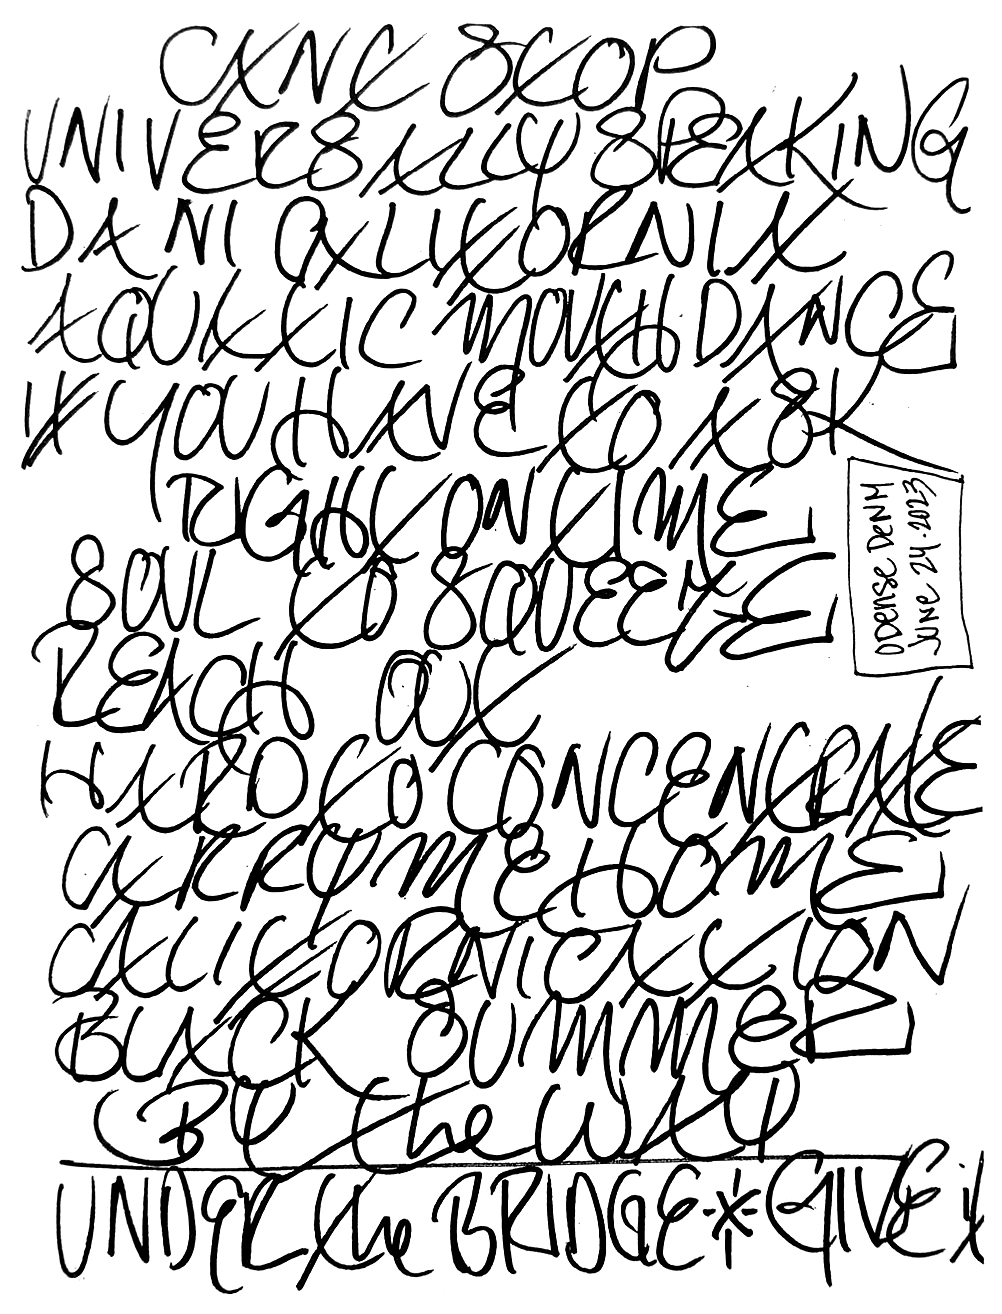 CAN'T STOP
UNIVERSALLY SPEAKING
DANI CALIFORNIA
AQUATIC MOUTH DANCE
IF YOU HAVE TO ASK
RIGHT ON TIME
SOUL TO SQUEEZE
REACH OUT
HARD TO CONCENTRATE
CARRY ME HOME
CALIFORNICATION
BLACK SUMMER
By the WAY
UNDER the BRIDGE * GIVE it
ODENSE DENM
JUNE 24·2023